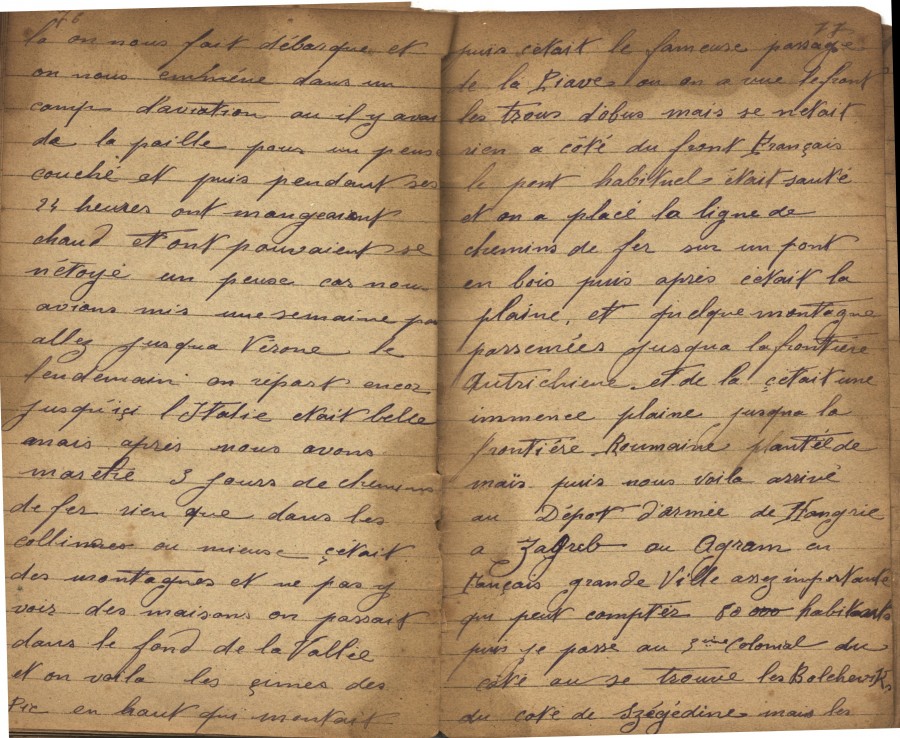 76
la on nous fait débarque et
on nous emméne dans un
camp d'aviation ou il y avai
de la paille pour un peuse
couché et puis pendant ses
24 heures ont mangeaient
chaud et ont pouvaient se
nétoyé un peuse car nou
avions mis une semaine po
allez jusqua Vérone le
lendemain on répart encor
jusqu'içi l'Italie etait belle
mais après nous avons
marché 3 jours de chemins
de fer rien que dans les
collines ou mieuse çétait
des montagnes et ne pas y
voir des maisons on passait
dans le fond de la Vallée
et on voila les çimes des
Pic en haut qui montait
77
puis cétait le fameuse passage
de la Piave ou on a vue le front
les trous d'obus mais se nétait
rien a côté du front Français
le pont habituel était sauté
et on a placé la ligne de
chemins de fer sur un pont
en bois puis après cétait la
plaine, et quelque montagne
parsemées jusqua la frontière
Autrichiene. et de la çétait une
immence plaine jusqua la
frontiére Roumaine plantée de
maïs puis nous voila arrivé
au Dépot d'armée de Hongrie
a Zagreb ou Agram en
Français grande Ville assez importante
qui peut comptér 80 000 habitants
puis je passe au 3eme Colonial du
côté ou se trouve les Bolcheviks
du coté de Szégédine mais les